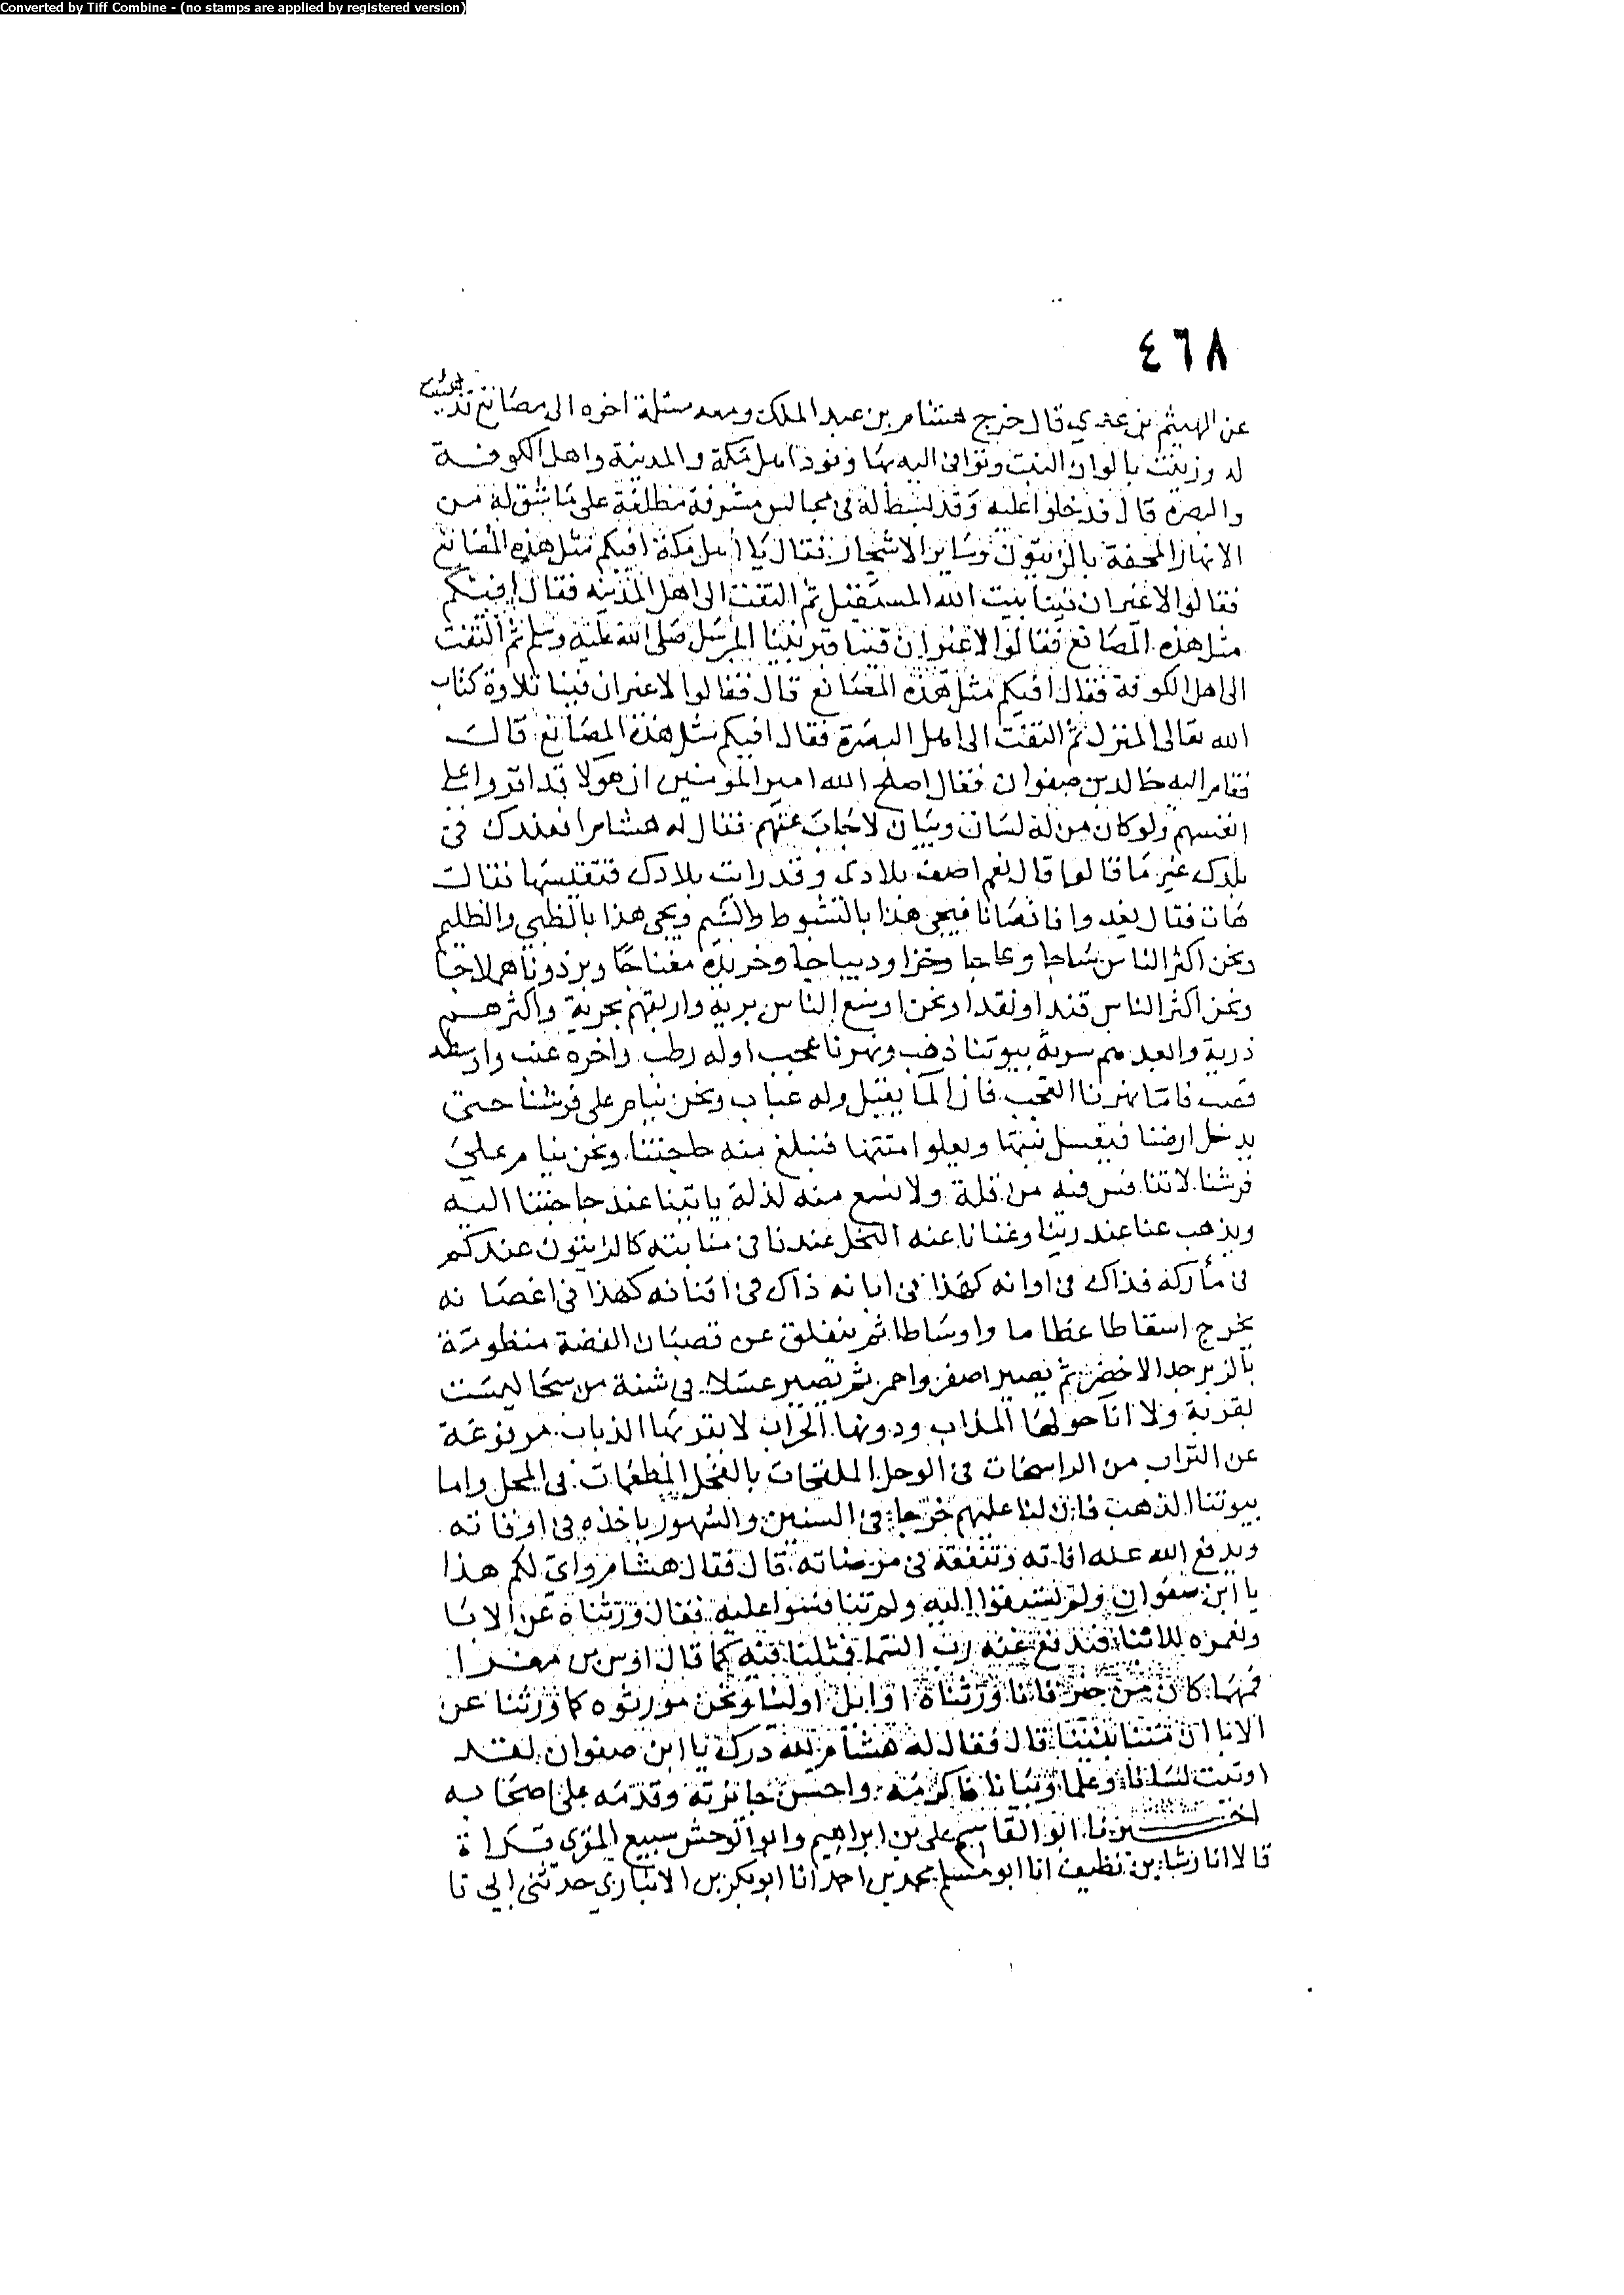 Converted by Tiff Combine - (no stamps are applied by registered version)
٤٦٨
عن الهيثم بن عدي قال خرج هشام بن عبد الملك ومعه مسلمة اخوه الى مصانع قد هيئت
له وزينت بالوان النبت وتوافى اليه بها وفود اهل مكة والمدينة واهل الكوفة
والبصرة قال فدخلوا عليه وقد بسط له في مجالس مشرفة مطلعة على ما شق له من
الانهار المحفة بالزيتون وساير الاشجار فقال يا اهل مكة افيكم مثل هذه المصانع
فقالوا لا غير ان فينا بيت الله المستقبل ثم التفت الى اهل المدينة فقال افيكم
مثل هذه المصانع فقالوا لا غير ان فينا قبر نبينا المرسل صلى الله عليه وسلم ثم التفت
الى اهل الكوفة فقال افيكم مثل هذه المصانع قال فقالوا لا غير ان فينا تلاوة كتاب
الله تعالى المنزل ثم التفت الى اهل البصرة فقال افيكم مثل هذه المصانع قال
فقام اليه خالد بن صفوان فقال اصلح الله امير المومنين ان هولا قد اقروا على
انفسهم ولو كان من له لسان وبيان لاجاب عنهم فقال له هشام افعندك في
بلدك غير ما قالوا قال نعم اصف بلادي وقد رايت بلادك فتقيسها فقال
هات فقال يغدوا قانصانا فيجي هذا بالشبوط والشيم ويجي هذا بالظبي والظليم
ونحن اكثر الناس ساجا وعاجا وخزا وديباجا وخريدة مغناجا وبرذونا هملاجا
ونحن اكثر الناس قندا ونقدا ونحن اوسع الناس برية واريفهم بحرية واكثرهم
ذرية وابعدهم سرية بيوتنا ذهب ونهرنا عجب اوله رطب واخره عنب واوسطه
قصب فاما نهرنا العجب فان الما يقبل وله عباب ونحن نيام على فرشنا حتى
يدخل ارضنا فيغسل نبتها ويعلوا متنها فنبلغ منه حاجتنا ونحن نيام على
فرشنا لا تنافس فيه من قلة ولا نمنع منه لذلة ياتينا عند حاجتنا اليه
ويذهب عنا عند رينا وغنانا عنه النخل عندنا في منابته كالزيتون عندكم
في مأركه فذاك في اوانه كهذا في ابانه ذاك في افنانه كهذا في اغصانه
يخرج اسقاطا عظاما واوساطا ثم ينفلق عن قصبان الفضة منظومة
بالزبرجد الاخضر ثم يصير اصفر واحمر ثم يصير عسلا في شنة من سحا ليست
بقربة ولا انا حولها المذاب ودونها الحراب لا يقربها الذباب مرفوعة
عن التراب من الراسخات في الوحل الملقحات بالفحل المطعمات في المحل واما
بيوتنا الذهب فان لنا عليهم خرجا في السنين والشهور ياخذه في اوقاته
ويدفع الله عنه افاته وتنفقه في مرضاته قال فقال هشام واني لكم هذا
يا ابن صفوان ولم تسبقوا اليه ولم تنافسوا عليه فقال ورثناه عن الابا
ونعمره للابنا فيدفع عنه رب السما فمثلنا فيه كما قال اوس بن مغرا
فمهما كان من خير فانا ورثناه اوايل اولينا ونحن مورثوه كما ورثنا عن
الابا ان متنا بنينا قال فقال له هشام لله درك يا ابن صفوان لقد
اوتيت لسانا وعلما وبيانا فاكرمه واحسن جائزته وقدمه على اصحابه
اخبرنا ابو القاسم علي بن ابراهيم وابو الوحش سبيع المقري قراة
قالا انا رشا بن نظيف انا ابو مسلم محمد بن احمد انا ابو بكر بن الانباري حدثني ابي نا